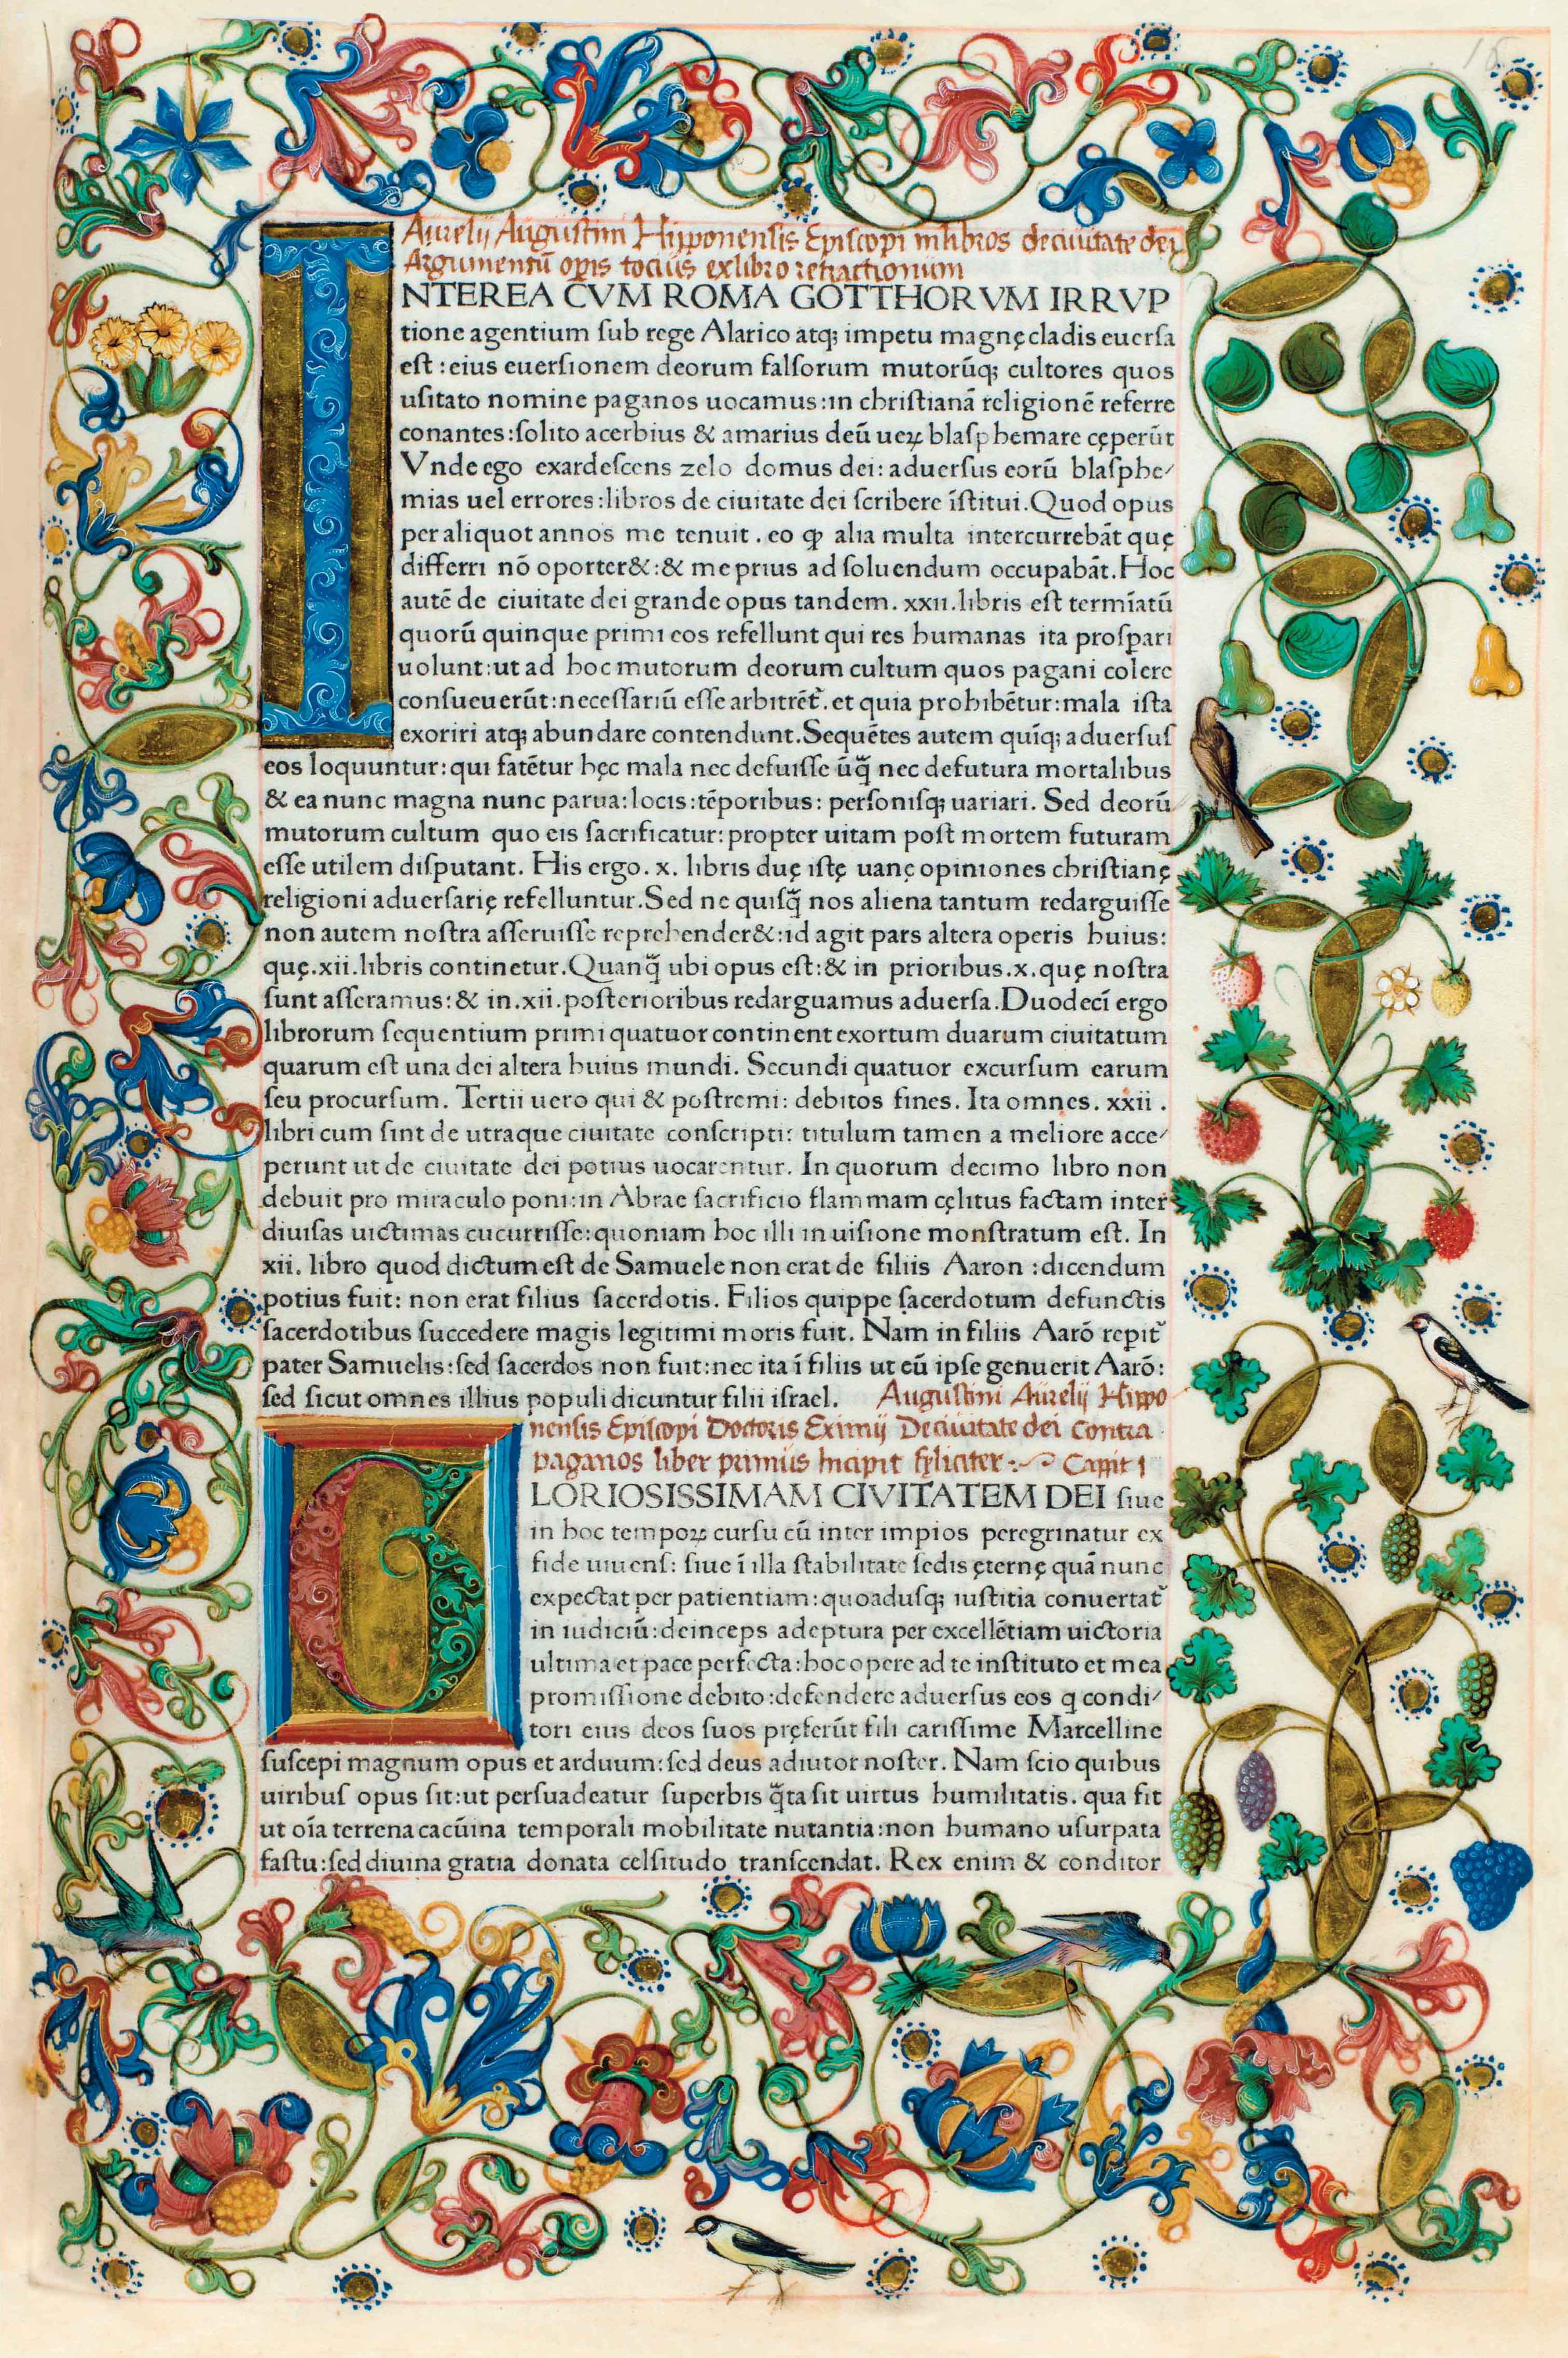 Aurelij Augustini Hipponensis Episcopi in libros de ciuitate dei
Argumentū opis tocius ex libro retractionum
INTEREA CVM ROMA GOTTHORVM IRRVP
tione agentium ſub rege Alarico atq; impetu magnę cladis euerſa
eſt : eius euerſionem deorum falſorum mutorūq; cultores quos
uſitato nomine paganos uocamus: in chriſtianā religionē referre
conantes: ſolito acerbius & amarius deū ueꝝ blaſphemare cęperūt
Vnde ego exardeſcens zelo domus dei: aduerſus eorū blaſphe/
mias uel errores: libros de ciuitate dei ſcribere iſtitui. Quod opus
per aliquot annos me tenuit . eo ꝙ alia multa intercurrebāt quę
differri nō oporter&: & me prius ad ſoluendum occupabāt. Hoc
autē de ciuitate dei grande opus tandem. xxii. libris eſt termīatū
quorū quinque primi eos refellunt qui res humanas ita proſꝑari
uolunt: ut ad hoc mutorum deorum cultum quos pagani colere
conſueuerūt: neceſſariū eſſe arbitrēt᷑. et quia prohibētur: mala iſta
exoriri atq; abundare contendunt. Sequētes autem quīq; aduerſuſ
eos loquuntur: qui fatētur hęc mala nec defuiſſe ūq̄ nec defutura mortalibus
& ea nunc magna nunc parua: locis: tēporibus: perſoniſq; uariari. Sed deorū
mutorum cultum quo eis ſacrificatur: propter uitam poſt mortem futuram
eſſe utilem diſputant. His ergo. x. libris duę iſtę uanę opiniones chriſtianę
religioni aduerſarię refelluntur. Sed ne quiſq̄ nos aliena tantum redarguiſſe
non autem noſtra aſſeruiſſe reprehender&: id agit pars altera operis huius:
quę. xii. libris continetur. Quanq̄ ubi opus eſt: & in prioribus. x. quę noſtra
ſunt aſſeramus: & in. xii. poſterioribus redarguamus aduerſa. Duodecī ergo
librorum ſequentium primi quatuor continent exortum duarum ciuitatum
quarum eſt una dei altera huius mundi. Secundi quatuor excurſum earum
ſeu procurſum. Tertii uero qui & poſtremi: debitos fines. Ita omnes. xxii .
libri cum ſint de utraque ciuitate conſcripti: titulum tamen a meliore acce/
perunt ut de ciuitate dei potius uocarentur. In quorum decimo libro non
debuit pro miraculo poni: in Abrae ſacrificio flammam cęlitus factam inter
diuiſas uictimas cucurriſſe: quoniam hoc illi in uiſione monſtratum eſt. In
xii. libro quod dictum eſt de Samuele non erat de filiis Aaron : dicendum
potius fuit: non erat filius ſacerdotis. Filios quippe ſacerdotum defunctis
ſacerdotibus ſuccedere magis legitimi moris fuit. Nam in filiis Aarō reꝑit᷑
pater Samuelis: ſed ſacerdos non fuit: nec ita ī filiis ut eū ipſe genuerit Aarō:
ſed ſicut omnes illius populi dicuntur filii iſrael. Auguſtini Aurelij Hippo
nenſis Epiſcopi Doctoris Eximij De ciuitate dei contra
paganos liber primus Incipit fęliciter :~ Capit 1
GLORIOSISSIMAM CIVITATEM DEI ſiue
in hoc tempoꝝ curſu cū inter impios peregrinatur ex
fide uiuenſ: ſiue ī illa ſtabilitate ſedis ęternę quā nunc
expectat per patientiam: quoaduſq; iuſtitia conuertat᷑
in iudiciū: deinceps adeptura per excellētiam uictoria
ultima et pace perfecta: hoc opere ad te inſtituto et mea
promiſſione debito: defendere aduerſus eos q condi/
tori eius deos ſuos pręferūt fili cariſſime Marcelline
ſuſcepi magnum opus et arduum: ſed deus adiutor noſter. Nam ſcio quibus
uiribuſ opus ſit: ut perſuadeatur ſuperbis q̄ta ſit uirtus humilitatis. qua fit
ut oīa terrena cacūina temporali mobilitate nutantia: non humano uſurpata
faſtu: ſed diuina gratia donata celſitudo tranſcendat. Rex enim & conditor